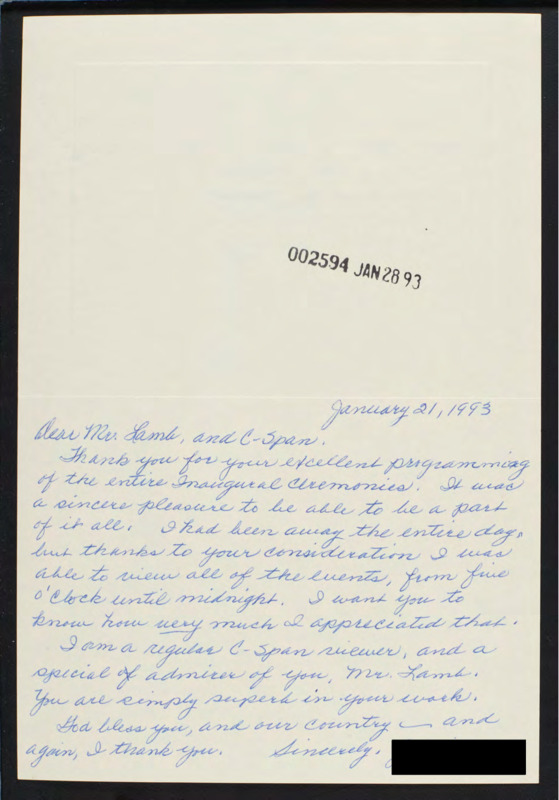 002594 JAN 28 93
January 21, 1993
Dear Mr. Lamb, and C-Span.
Thank you for your excellent programming
of the entire Inaugural Ceremonies. It was
a sincere pleasure to be able to be a part
of it all. I had been away the entire day,
but thanks to your consideration I was
able to view all of the events, from five
o'clock until midnight. I want you to
know how very much I appreciated that.
I am a regular C-Span viewer, and a
special of admirer of you, Mr. Lamb.
You are simply superb in your work.
God bless you, and our country — and
again, I thank you. Sincerely,